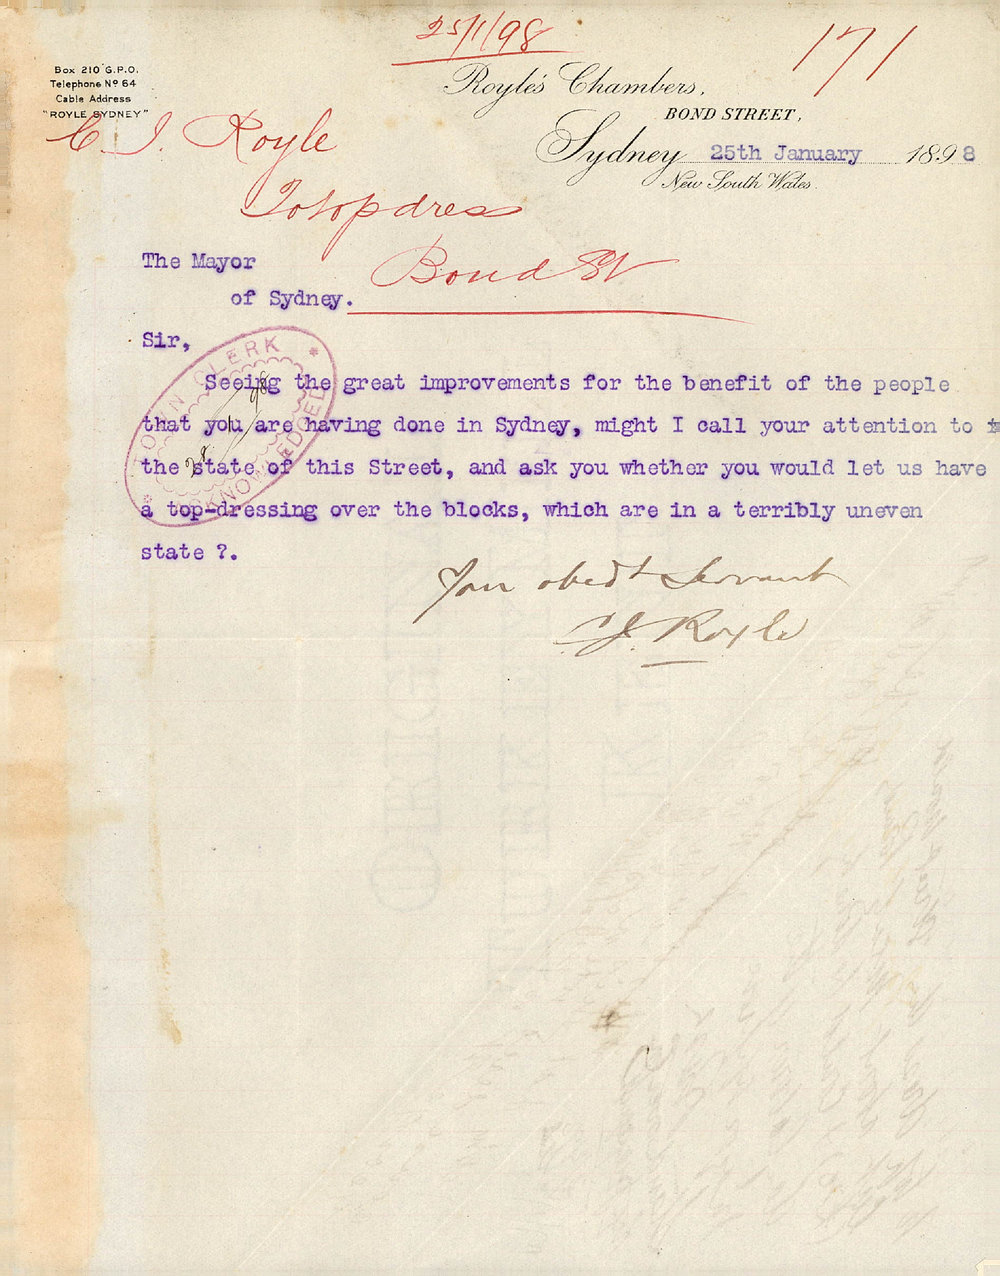 25/1/98
171
Box 210 G.P.O.
Telephone Nº 64
Cable Address
"ROYLE SYDNEY"
Royle's Chambers,
BOND STREET,
Sydney 25th January 1898
New South Wales.
C. J. Royle
To top dress
Bond St
The Mayor
of Sydney.
Sir,
Seeing the great improvements for the benefit of the people
that you are having done in Sydney, might I call your attention to
the state of this Street, and ask you whether you would let us have
a top-dressing over the blocks, which are in a terribly uneven
state ?.
TOWN CLERK
ACKNOWLEDGED
28/1/98
Your obedt Servant
C J. Royle